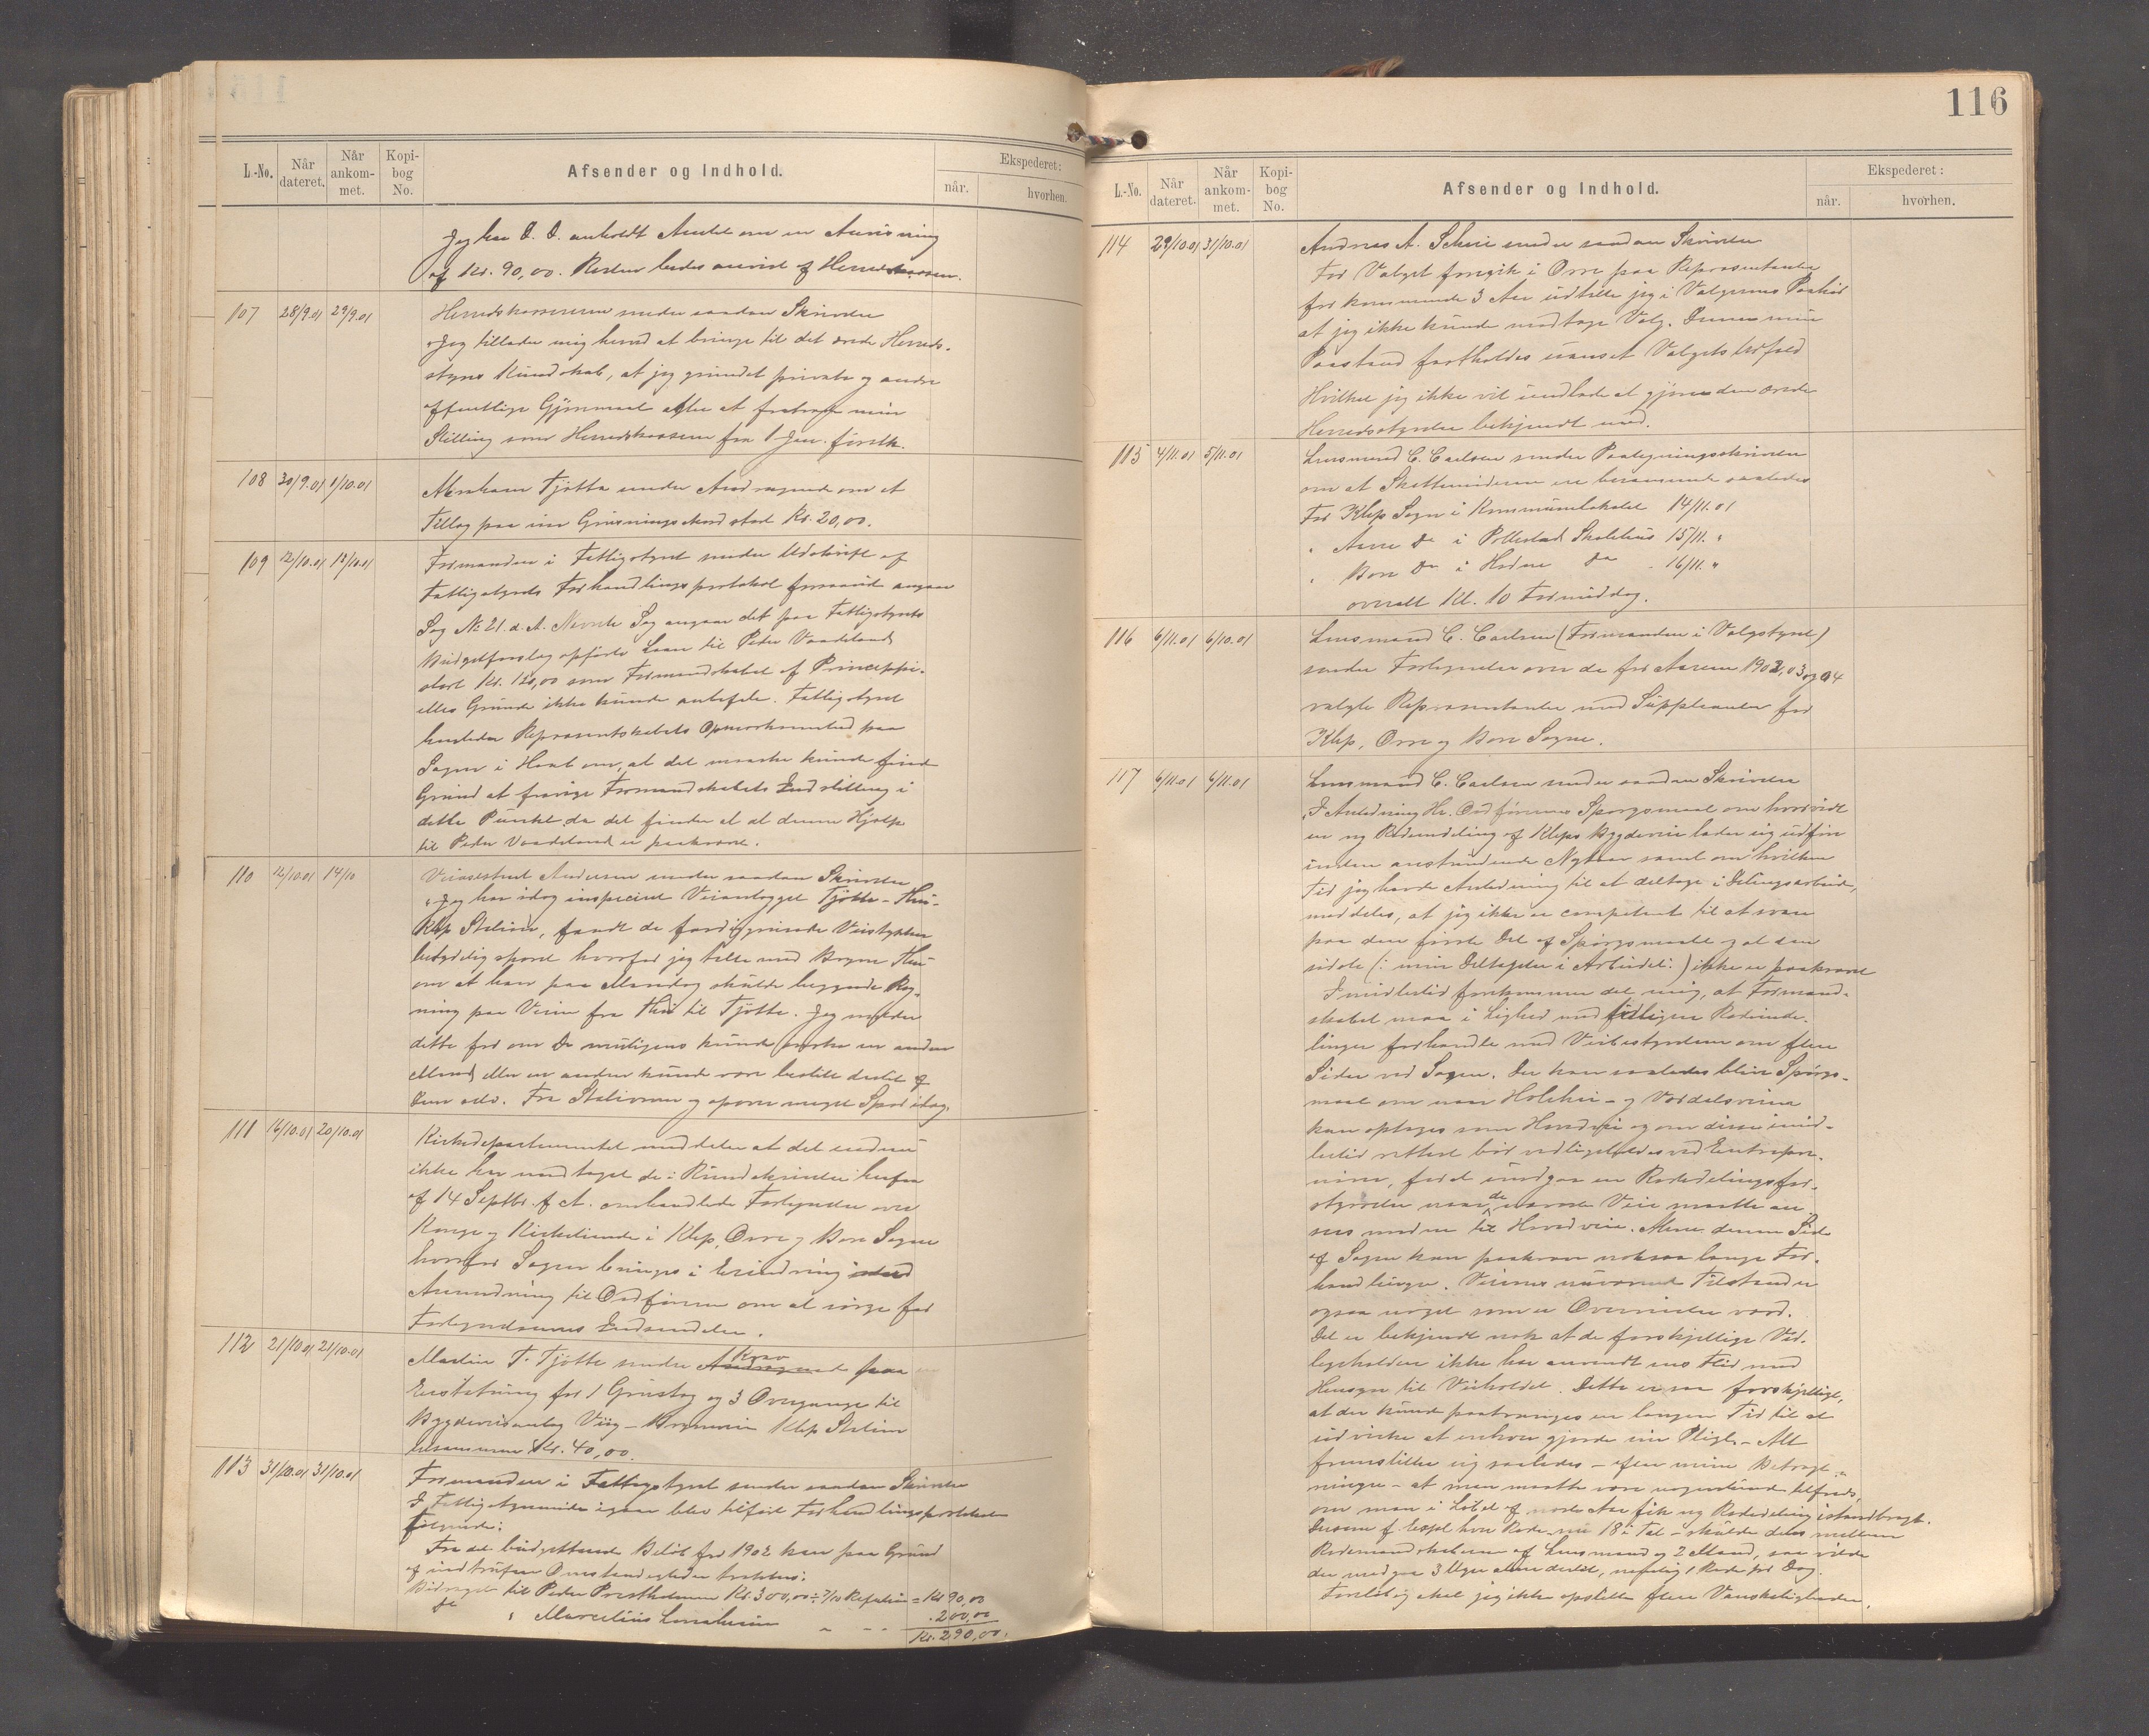 L.-No.
Når dateret.
Når ankommet.
Kopibog No.
Afsender og Indhold.
Ekspederet:
når.
hvorhen.
Jeg har d. D. anholdt Amtet om en Anvisning
af Kr. 90,00. Resten bedes anvist af Herredskassen.
107 28/9.01 29/9.01
Herredskassereren sender saadan Skrivelse
"Jeg tillader mig herved at bringe til det ærede Herreds-
styres Kundskab, at jeg grundet private og andre
offentlige Gjøremaal agter at fratræde min
Stilling som Herredskasserer fra 1 Jan. førstk.
108 30/9.01 1/10.01
Abraham Tjøtta sender Andragende om et
Tillæg paa sin Grusningsakord stort Kr. 20,00.
109 12/10.01 12/10.01
Formanden i Fattigstyret sender Udskrift af
Fattigstyrets Forhandlingsprotokol forsaavidt angaar
Sag No 21. d. A. Nævnte Sag angaar det paa Fattigstyrets
Budgetforslag opførte Laan til Peder Vaadeland
stort Kr. 120,00 som Formandskabet af Princeppi-
elle Grunde ikke kunde anbefale. Fattigstyret
henleder Repræsentskabets Opmærksomhed paa
Sagen i Haab om, at det maaske kunde finde
Grund at fravige Formandskabets Indstilling i
dette Punkt da det finder at denne Hjælp
til Peder Vaadeland er paakrævet.
110 12/10.01 14/10
Veiassistent Andersen sender saadan Skrivelse
"Jeg har idag inspiceret Veianlægget Tjøtta - Hui-
Klep Station, fandt de færdiggrusede Veistykker
betydelig sporet hvorfor jeg talte med Brynie Hui
om at han paa Mandag skulde begynde Rag-
ning paa Veien fra Hui til Tjøtta. Jeg melder
dette for om De muligens kunde ønske en anden
Mand eller en anden kunde være bestilt dertil af
Dem selv. Fra Stationen og opover meget Spor idag.
111 16/10.01 20/10.01
Kirkedepartementet meddeler at det endnu
ikke har modtaget de i Rundskrivelse herfra
af 14 Septbr. f A. omhandlede Fortegnelse over
Konge og Kirketiende i Klep, Orre og Bore Sogne
hvorfor Sagen bringes i Erindring med
Anmodning til Ordføreren om at sørge for
Fortegnelsernes Indsendelse.
112 21/10.01 21/10.01
Martin T. Tjøtta sender Andragende Krav paa
Erstatning for 1 Grustag og 3 Overgange til
Bygdeveisanlæg Vig - Brynevei Klep Station
tilsammen Kr. 40,00.
113 31/10.01 31/10.01
Formanden i Fattigstyret sender saadan Skrivelse
I Fattigstyremøde igaar blev tilført Forhandlingsprotokolen
Følgende:
Fra det budgetterede Beløb for 1902 kan paa Grund
af indtrufne Omstændigheder trækkes:
Bidraget til Peder Præstholmen Kr. 300,00 ÷ 7/10 Refusion = Kr 90,00
do " Marcelius " - - " 200,00
Kr. 290,00.
116
L.-No.
Når dateret.
Når ankommet.
Kopibog No.
Afsender og Indhold.
Ekspederet:
når.
hvorhen.
114 29/10.01 31/10.01
Andreas A. Scheie sender saadan Skrivelse
Før Valget foregik i Orre paa Repræsentanter
for kommende 3 Aar udtalte jeg i Vælgernes Paahør
at jeg ikke kunde modtage Valg. Denne min
Paastand fastholdes uanset Valgets Udfald
Hvilket jeg ikke vil undlade at gjøre den ærede
Herredsstyrelse bekjendt med.
115 4/11.01 5/11.01
Lensmand C. Carlsen sender Paategningsskrivelse
om at Skattemøderne er berammede saaledes
For Klep Sogn i Kommunelokalet 14/11.01
" Aarre Do i Pollestad Skolehus 15/11. "
" Bore Do i Hodne Do - 16/11. "
overalt Kl. 10 Formiddag.
116 6/11.01 6/10.01
Lensmand C. Carlsen (Formanden i Valgstyret)
sender Fortegnelse over de for Aarene 1902, 03 og 04
valgte Repræsentanter med Suppleanter for
Klep, Orre og Bore Sogne.
117 6/11.01 6/11.01
Lensmand C. Carlsen sender saadan Skrivelse
"I Anledning Hr. Ordførerens Spørgsmaal om hvorvidt
en ny Rodeinddeling af Kleps Bygdeveie lader sig udføre
inden anstundende Nytaar samt om hvilken
Tid jeg havde Anledning til at deltage i Delingsarbeide,
meddeles, at jeg ikke er competent til at svare
paa den første Del af Spørgsmaalet og at den
sidste (: min Deltagelse i Arbeidet :) ikke er paakrævet
Imidlertid forekommer det mig, at Formand-
skabet maa i Lighed med tidligere Rodeinde-
linger forhandle med Veibestyrelsen om flere
Sider ved Sagen. Der kan saaledes blive Spørgs-
maal om naar Holshei - og Vardalsveien
kan optages som Hovedvei og om disse imid-
lertid rettest bør vedligeholdes ved Entrepre-
nører, for at undgaa en Rodedelingsfor-
styrrelse naar de nævnte Veie maatte an-
sees modne til Hovedveie. Men denne Side
af Sagen kan paakræve noksaa lange For-
handlinger. Veienes nuværende Tilstand er
ogsaa noget som er Overveielse værd.
Det er bekjendt nok at de forskjellige Ved-
ligeholdere ikke har anvendt ens Flid med
Hensyn til Veiholdet. Dette er saa forskjelligt,
at der kunde paatrænges en længere Tid til at
udvirke at enhver gjorde sin Pligt. - Alt
fremstiller sig saaledes - efter mine Betragt-
ninger - at man maatte være nogenlunde tilfreds,
om man i Løbet af næste Aar fik ny Rodedeling istandbragt.
Dersom f. Expl. hver Rode - nu 18 i Tal - skulde deles mellem
Rodemandskaberne af Lensmand og 2 Mand, saa vilde
der medgaa 3 Uger alene dertil, nemlig 1 Rode pr Dag.
Foreløbig skal jeg ikke opstille flere Vanskeligheder.